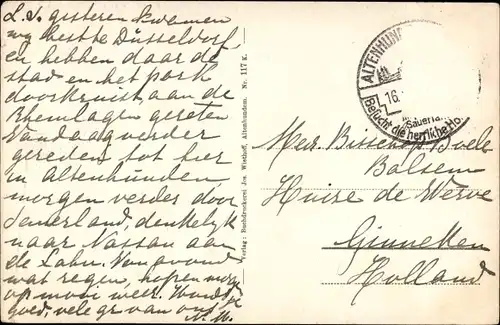 L. S. gisteren kwamen
wy Düsseldorf
en hebben daar de
stad en het park
doorkruist, aan de
Rheinlagen gegeten
Vandaag verder
gereden tot hier
in Altenhunden,
morgen verder door
Sauerland, denkelyk
naar Nassau aan
de Lahn. Vanavond
wat regen, hopen morgen
op mooi weer. Houd je
goed, vele gr van ons
M. W.
Verlag: Buchdruckerei Jos. Wiethoff, Altenhundem. Nr. 117 K.
ALTENHUN
16.
Sauerla
Besucht die herrliche Ho
Mev. Bisschop Boele
Huize de Werve
Ginneken
Holland